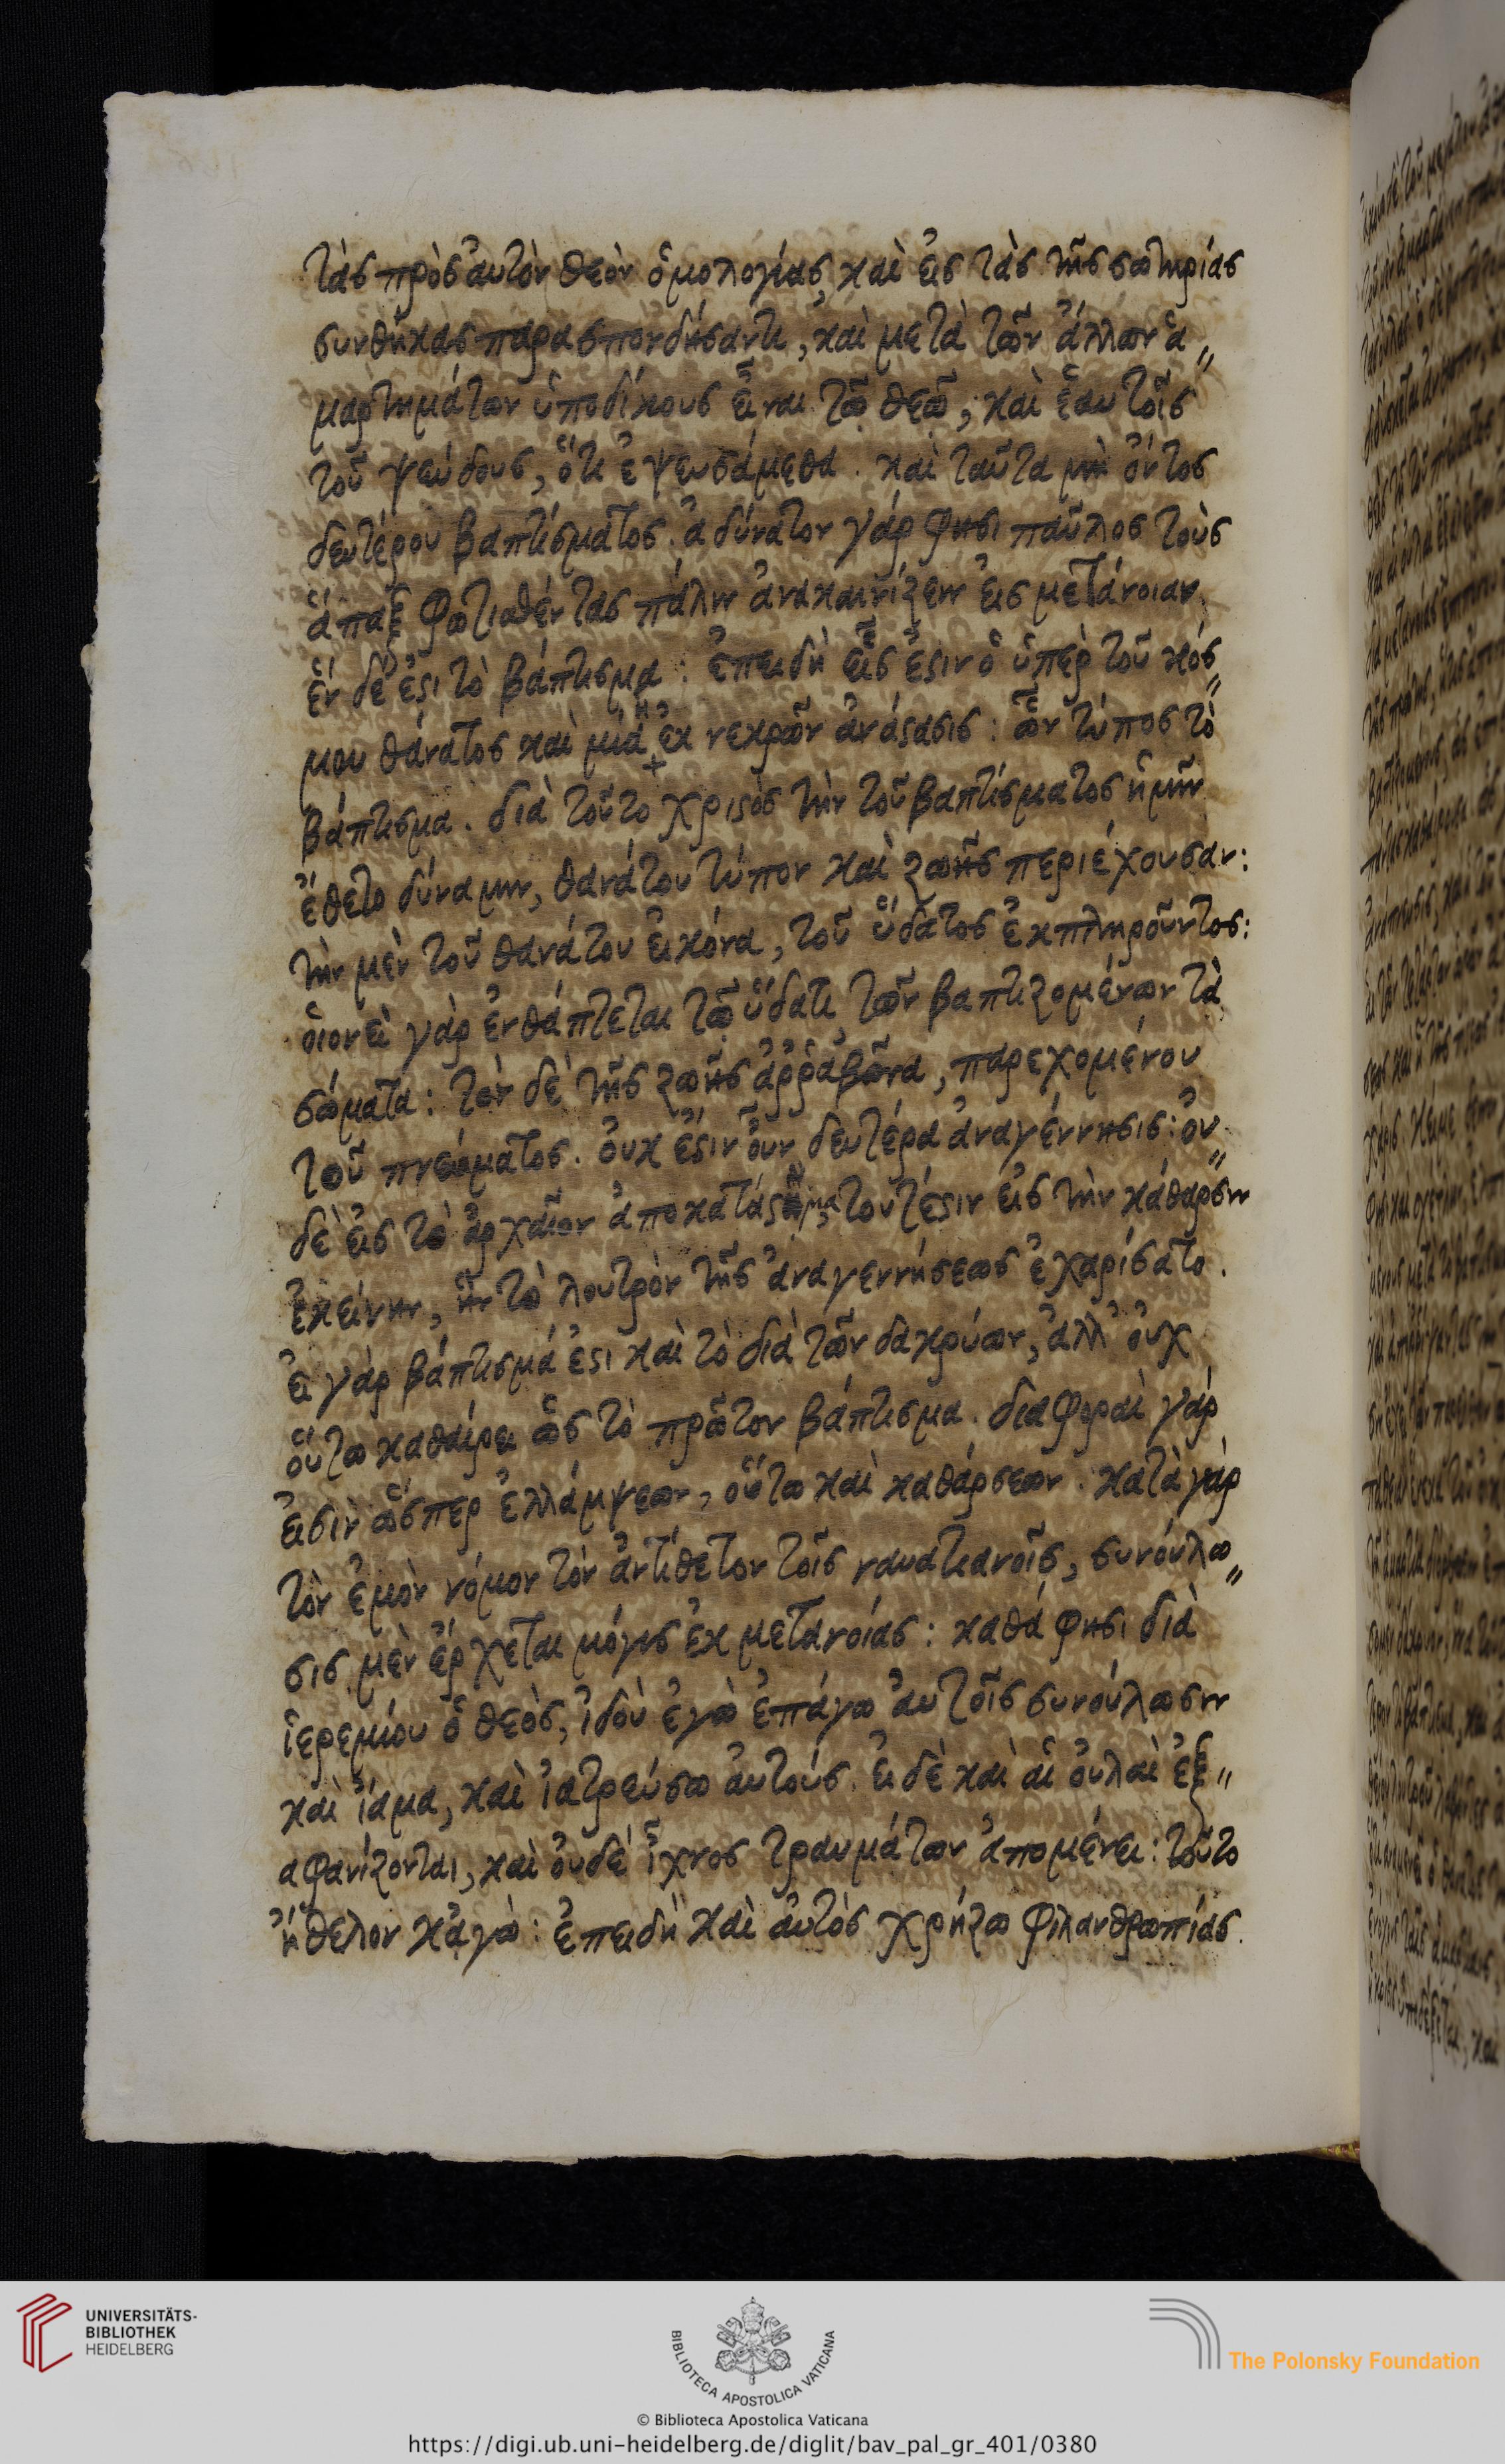 τὰς πρὸς αὐτὸν θεὸν ὁμολογίας, καὶ εἰς τὰς τῆς σωτηρίας
συνθήκας παρασπονδήσαντι, καὶ μετὰ τῶν ἄλλων ἁ„
μαρτημάτων ὑποδίκους εἶναι τῷ θεῷ, καὶ ἑαυτοῖς
τοῦ ψεύδους, ὅτι ἐψευσάμεθα. καὶ ταῦτα μὴ ὄντος
δευτέρου βαπτίσματος. ἀδύνατον γάρ φησι παῦλος τοὺς
ἅπαξ φωτισθέντας πάλιν ἀνακαινίζειν εἰς μετάνοιαν.
ἓν δέ ἐστι τὸ βάπτισμα: ἐπειδὴ εἷς ἐστιν ὁ ὑπὲρ τοῦ κόσ„
μου θάνατος καὶ μία ἡ ἐκ νεκρῶν ἀνάστασις: ὧν τύπος τὸ
βάπτισμα. διὰ τοῦτο χριστὸς τὴν τοῦ βαπτίσματος ἡμῖν
ἔθετο δύναμιν, θανάτου τύπον καὶ ζωῆς περιέχουσαν:
τὴν μὲν τοῦ θανάτου εἰκόνα, τοῦ ὕδατος ἐκπληροῦντος:
οἱονεὶ γὰρ ἐνθάπτεται τῷ ὕδατι τῶν βαπτιζομένων τὰ
σώματα: τὸν δὲ τῆς ζωῆς ἀῤῥαβῶνα, παρεχομένου
τοῦ πνεύματος. οὐκ ἔστιν οὖν δευτέρα ἀναγέννησις: οὐ„
δὲ εἰς τὸ ἀρχαῖον τουτέστιν εἰς τὴν κάθαρσιν
ἐκείνην, ἣν τὸ λουτρὸν τῆς ἀναγεννήσεως ἐχαρίσατο.
εἰ γὰρ βάπτισμά ἐστι καὶ τὸ διὰ τῶν δακρύων, ἀλλ' οὐχ
οὕτω καθαίρει ὡς τὸ πρῶτον βάπτισμα. διαφοραὶ γάρ
εἰσιν ὥσπερ ἐλλάμψεων, οὕτω καὶ καθάρσεων. κατὰ γὰρ
τὸν ἐμὸν νόμον τὸν ἀντίθετον τοῖς ναυατιανοῖς, συνούλω„
σις μὲν ἔρχεται μόγις ἐκ μετανοίας: καθά φησι διὰ
ἱερεμίου ὁ θεὸς, ἰδοὺ ἐγὼ ἐπάγω αὐτοῖς συνούλωσιν
καὶ ἴαμα, καὶ ἰατρεύσω αὐτούς. εἰ δὲ καὶ αἱ οὐλαὶ ἐξ„
αφανίζονται, καὶ οὐδὲ ἴχνος τραυμάτων ἀπομένει: τοῦτο
ἤθελον κἀγὼ: ἐπειδὴ καὶ αὐτὸς χρήζω φιλανθρωπίας.
UNIVERSITÄTS-
BIBLIOTHEK
HEIDELBERG
BIBLIOTECA APOSTOLICA VATICANA
The Polonsky Foundation
© Biblioteca Apostolica Vaticana
https://digi.ub.uni-heidelberg.de/diglit/bav_pal_gr_401/0380